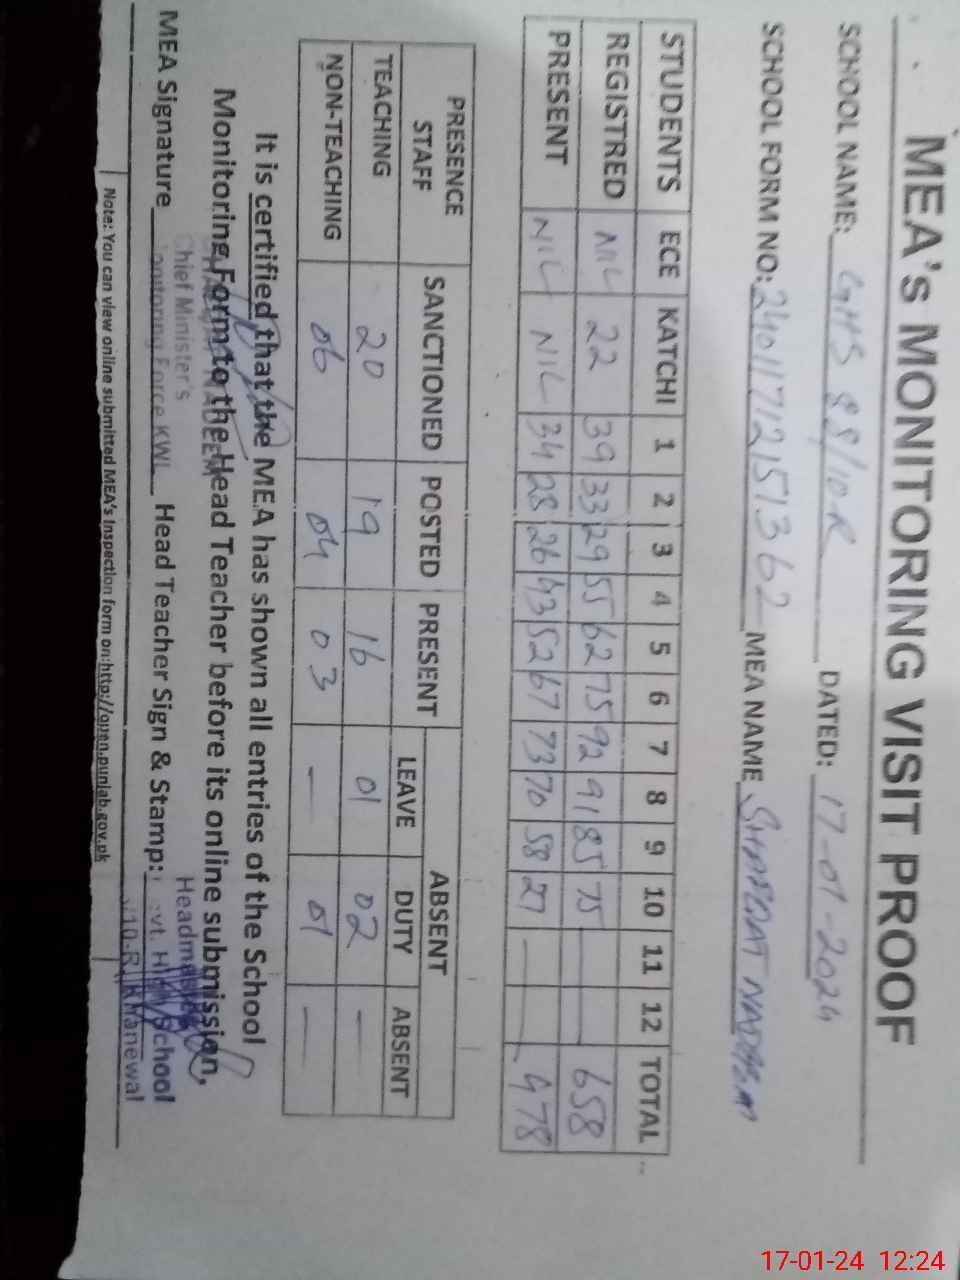 MEA's MONITORING VISIT PROOF
SCHOOL NAME: GHS 88/10R DATED: 17-01-2024
SCHOOL FORM NO: 2401171215513362 MEA NAME SHAFQAT NADEEM
STUDENTS ECE KATCHI 1 2 3 4 5 6 7 8 9 10 11 12 TOTAL
REGISTRED NIL 22 39 33 29 55 62 75 92 91 85 75 — — 658
PRESENT NIL NIL 34 28 26 43 52 67 73 70 58 27 — — 478
PRESENCE STAFF SANCTIONED POSTED PRESENT ABSENT
LEAVE DUTY ABSENT
TEACHING 20 19 16 01 02 —
NON-TEACHING 06 04 03 — 01 —
It is certified that the MEA has shown all entries of the School
Monitoring Form to the Head Teacher before its online submission,
NADEEM
Chief Minister's
Monitoring Force KWL
MEA Signature Head Teacher Sign & Stamp:
School
10-R Khanewal
Note: You can view online submitted MEA's Inspection form on:http://open.punjab.gov.pk
17-01-24 12:24